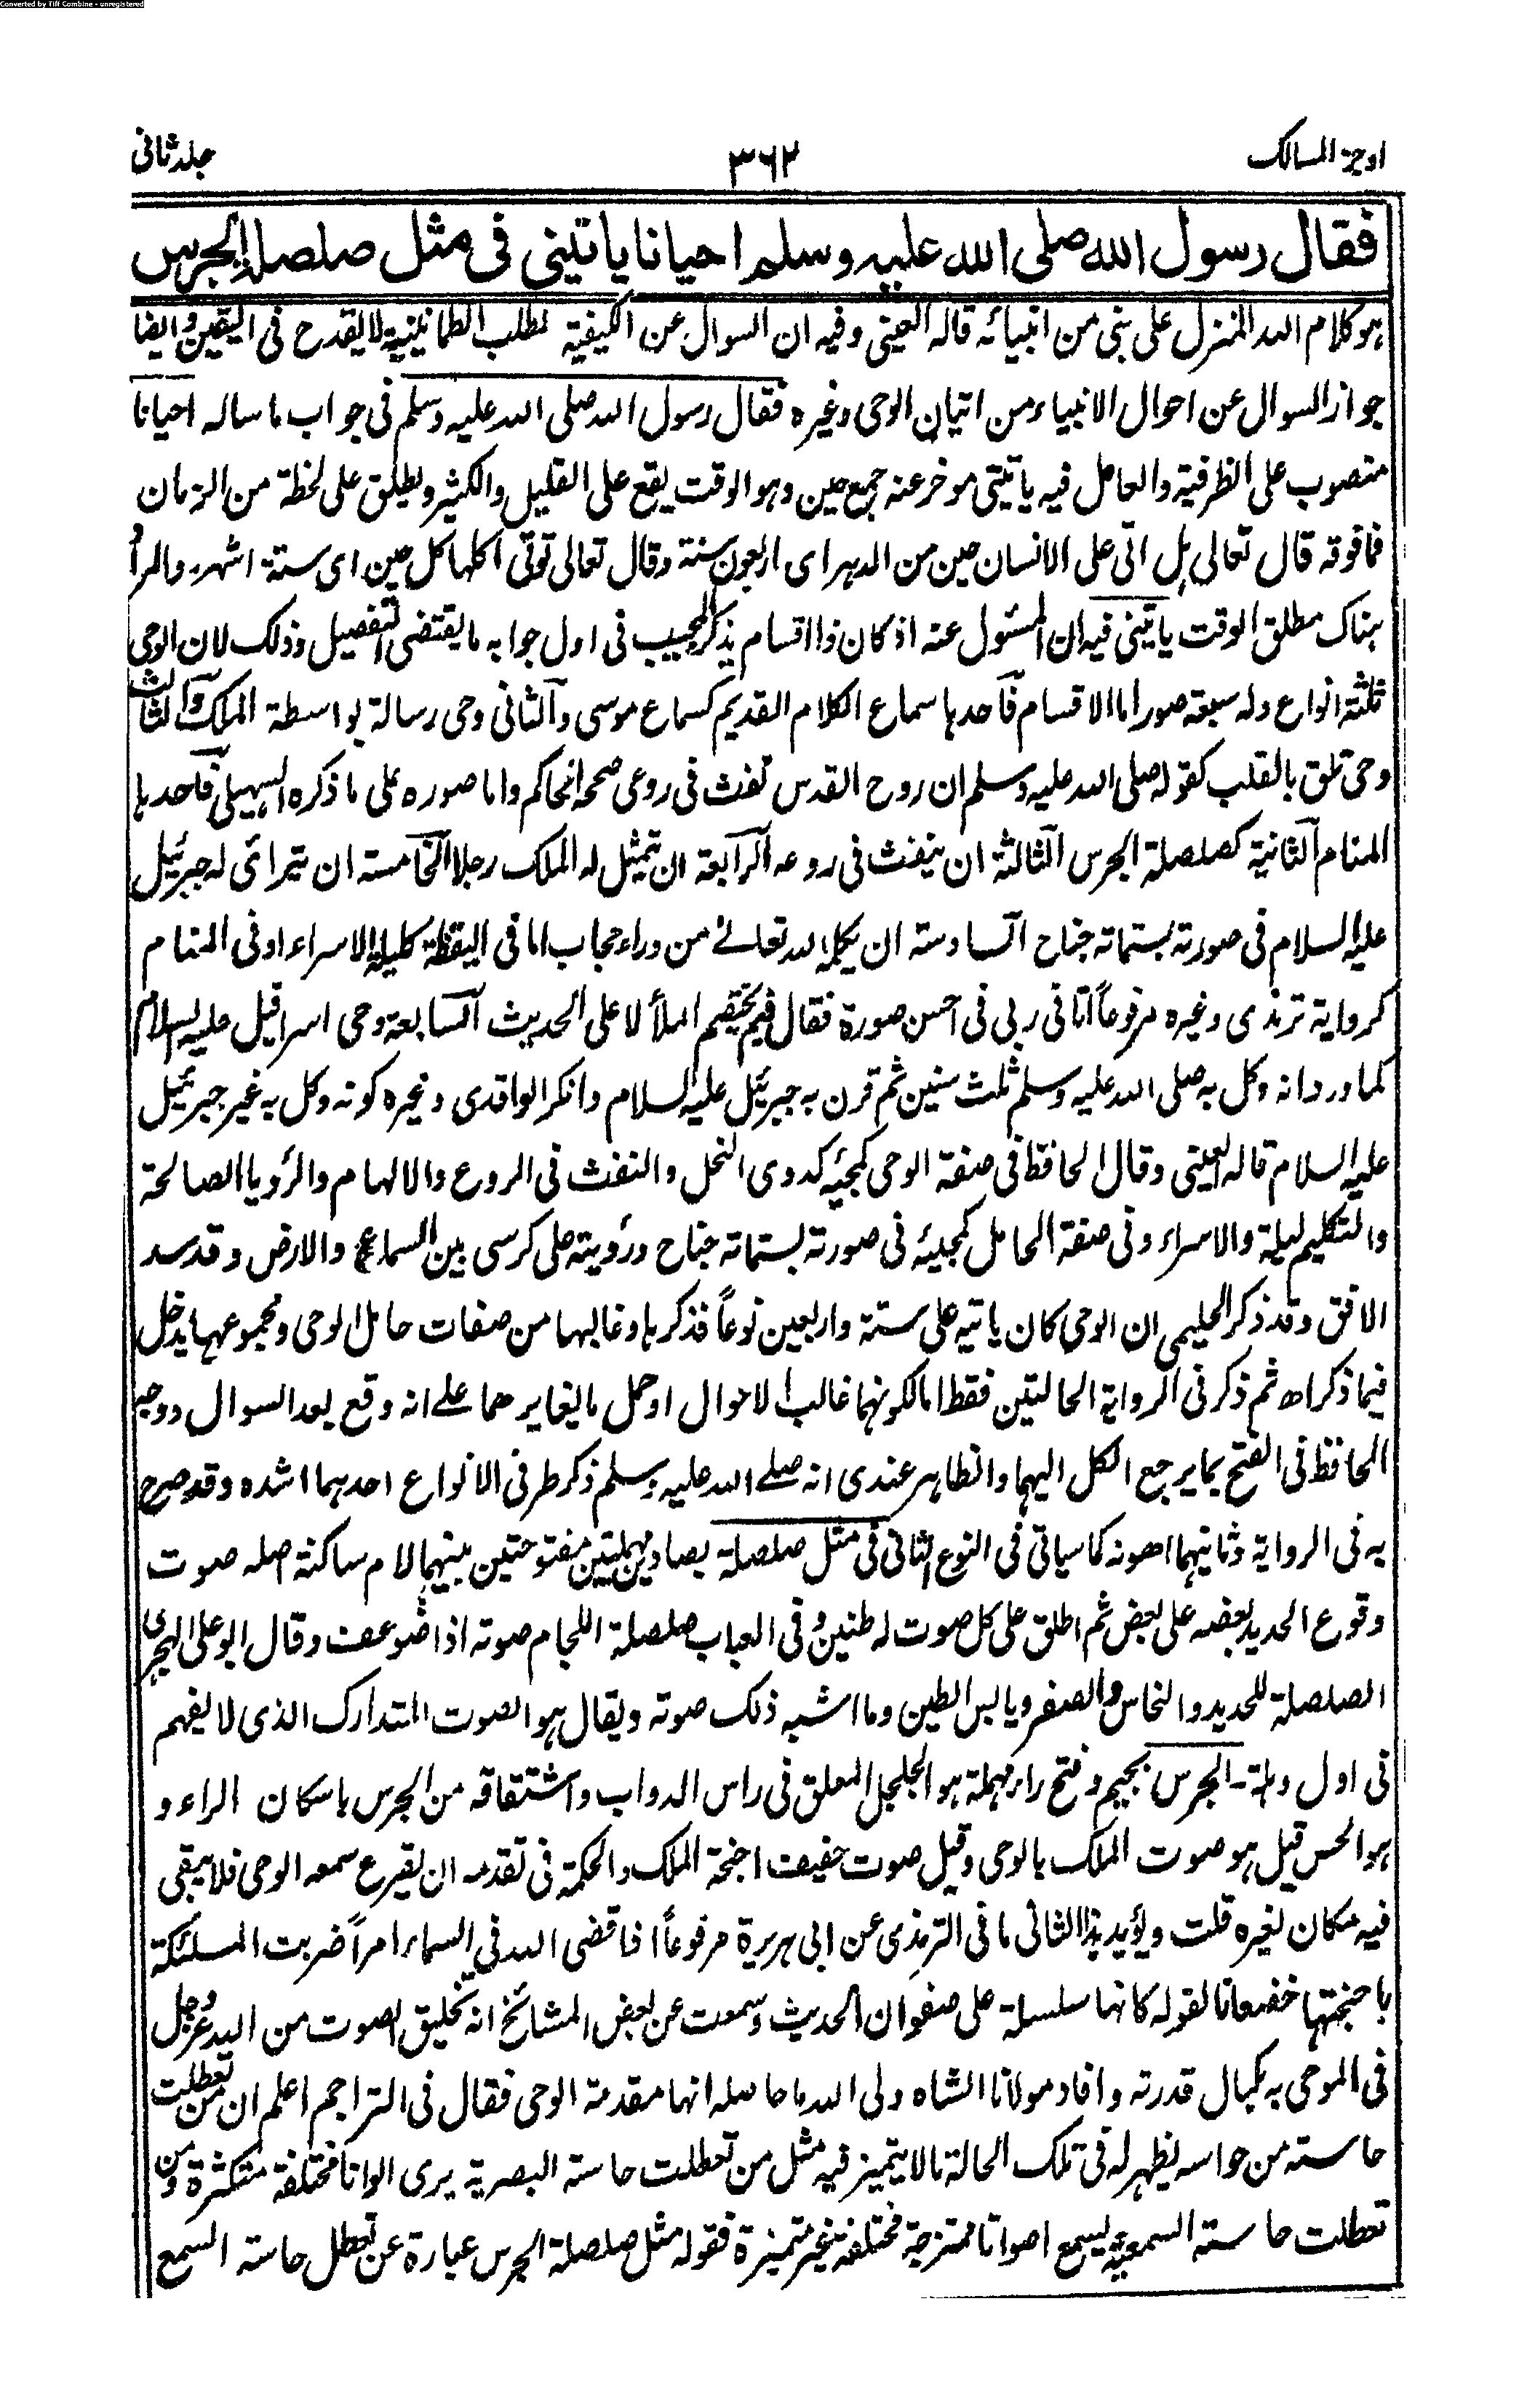 Converted by Tiff Combine - unregistered
اوجز المسالك ٣٦٢ جلد ثانی
فقال رسول الله صلى الله عليه وسلم احيانا ياتينى فى مثل صلصلة الجرس
ہو کلام اللہ المنزل علی نبی من انبیائہ قالہ العینی وفیہ ان السوال عن الکیفیة لطلب الطمانینیة لا یقدح فی الیقین وایضا
جواز السوال عن احوال الانبیاء من اتیان الوحی وغیرہ فقال رسول اللہ صلی اللہ علیہ وسلم فی جواب ما سالہ احیانا
منصوب علی الظرفیة والعامل فیہ یاتینی موخر عنہ جمع حین وہو الوقت یقع علی القلیل والکثیر ویطلق علی لحظة من الزمان
فما فوقہ قال تعالی ہل اتی علی الانسان حین من الدہر ای اربعون سنة وقال تعالی توتی اکلہا کل حین ای ستة اشہر والمراد
ہناک مطلق الوقت یاتینی فیہ ان المسئول عنہ اذ کان ذا اقسام یذکر المجیب فی اول جوابہ ما یقتضی التفصیل وذلک لان الوحی
ثلثة انواع ولہ سبعة صور اما الاقسام فاحدہا سماع الکلام القدیم کسماع موسی والثانی وحی رسالة بواسطة الملک والثالث
وحی تلق بالقلب کقولہ صلی اللہ علیہ وسلم ان روح القدس نفث فی روعی صححہ الحاکم واما صورہ علی ما ذکرہ السہیلی فاحدہا
المنام الثانیة کصلصلة الجرس الثالثة ان ینفث فی روعہ الرابعة ان یتمثل لہ الملک رجلا الخامسة ان یترائی لہ جبرئیل
علیہ السلام فی صورتہ بستمائة جناح السادسة ان یکلمہ اللہ تعالے من وراء حجاب اما فی الیقظة کلیلة الاسراء او فی المنام
کروایة ترمذی وغیرہ مرفوعاً اتانی ربی فی احسن صورة فقال فیم یختصم الملأ الاعلی الحدیث السابعة وحی اسرافیل علیہ السلام
کما ورد انہ وکل بہ صلی اللہ علیہ وسلم ثلث سنین ثم قرن بہ جبرئیل علیہ السلام وانکر الواقدی وغیرہ کونہ وکل بہ غیر جبرئیل
علیہ السلام قالہ العینی وقال الحافظ فی صفة الوحی کمجیئہ کدوی النحل والنفث فی الروع والالہام والرؤیا الصالحة
والتکلیم لیلة والاسراء وفی صفة الحامل کمجیئہ فی صورتہ بستمائة جناح ورؤیتہ علی کرسی بین السماء والارض وقد سد
الافق وقد ذکر الحلیمی ان الوحی کان یاتیہ علی ستة واربعین نوعاً فذکرہا وغالبہا من صفات حامل الوحی ومجموعہا یدخل
فیما ذکر اھ ثم ذکر فی الروایة الحالتین فقط اما لکونہما غالب الاحوال او حمل ما یغایرھما علے انہ وقع بعد السوال ووجہ
الحافظ فی الفتح بما یرجع الکل الیہما والظاہر عندی انہ صلے اللہ علیہ وسلم ذکر طرفی الانواع احدہما اشدہ وقد صرح
بہ فی الروایة وثانیہما اھونہ کما سیاتی فی النوع الثانی فی مثل صلصلة بصادین مہملتین مفتوحتین بینہما لام ساکنة اصلہ صوت
وقوع الحدید بعضہ علی بعض ثم اطلق علی کل صوت لہ طنین وفی العباب صلصلة اللجام صوتہ اذا ضوعف وقال ابو علی الہجری
الصلصلة للحدید والنحاس والصفر ویابس الطین وما اشبہ ذلک صوتہ ویقال ہو الصوت المتدارک الذی لا یفہم
فی اول وہلة - الجرس بجیم وفتح راء مہملة ہو الجلجل المعلق فی راس الدواب واشتقاقہ من الجرس باسکان الراء و
ہو الحس قیل ہو صوت الملک بالوحی وقیل صوت حفیف اجنحة الملک والحکمة فی تقدمہ ان یقرع سمعہ الوحی فلا یبقی
فیہ مکان لغیرہ قلت ویؤید ہذا الثانی ما فی الترمذی عن ابی ہریرة مرفوعاً اذا قضی اللہ فی السماء امراً ضربت الملئکة
باجنحتہا خضعانا لقولہ کانہا سلسلة علی صفوان الحدیث وسمعت عن بعض المشائخ انہ تخلیق الصوت من اللہ عز وجل
فی الموحی بہ بکمال قدرتہ وافاد مولانا الشاہ ولی اللہ ما حاصلہ انہا مقدمة الوحی فقال فی التراجم اعلم ان من تعطلت
حاستہ من حواسہ یظہر لہ فی تلک الحالة ما لا یتمیز فیہ مثل من تعطلت حاستہ البصریة یری الوانا مختلفة متکثرة ومن
تعطلت حاستہ السمعیة یسمع اصواتا ممتزجة مختلفة غیر متمیزة فقولہ مثل صلصلة الجرس عبارة عن تعطل حاستہ السمع